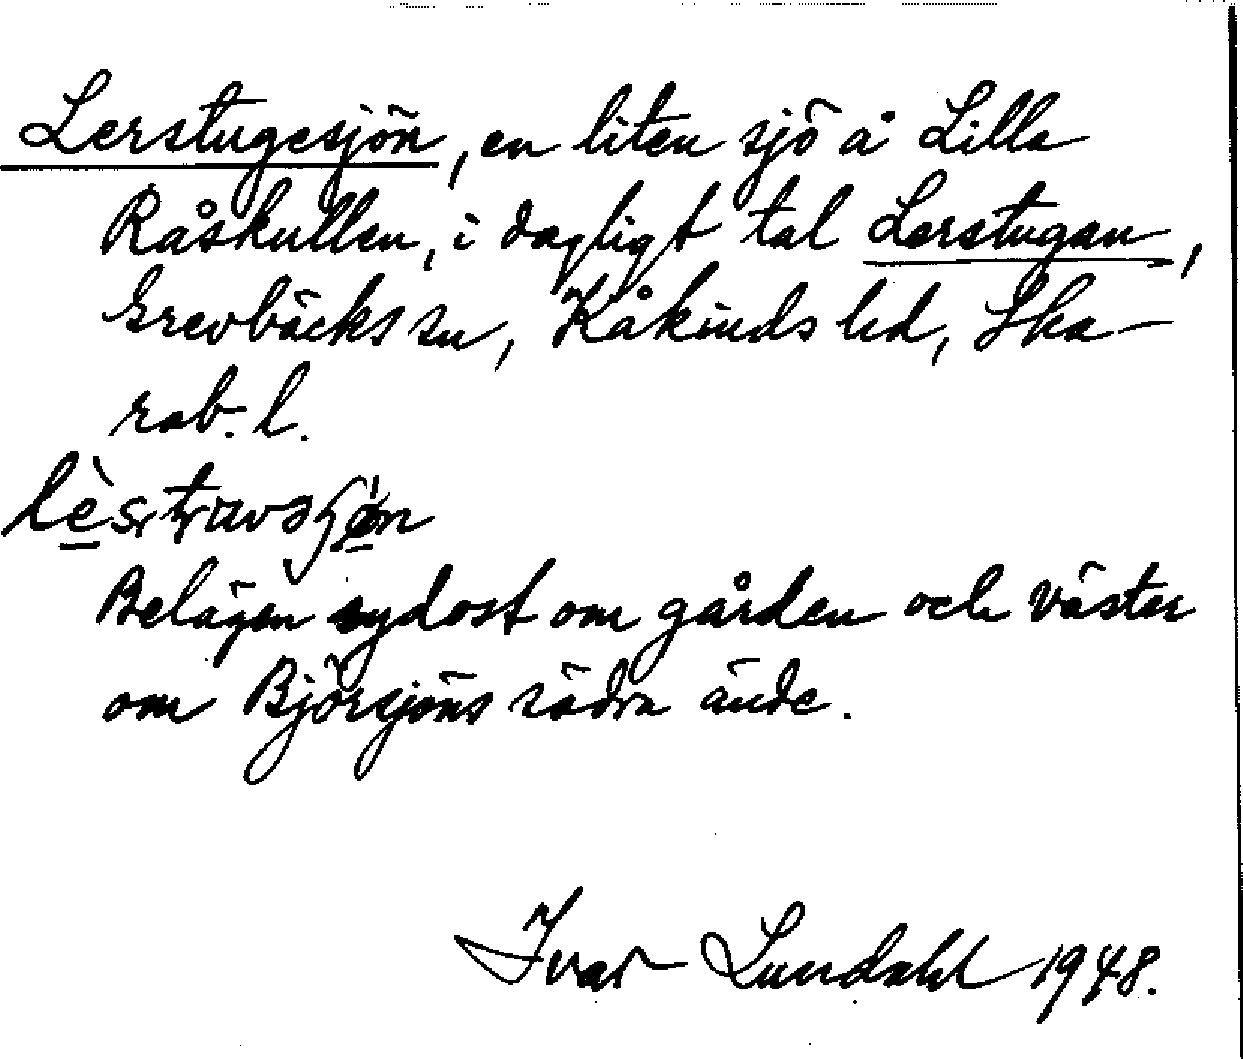 Lerstugesjön, en liten sjö å Lilla
Råskullen, i dagligt tal Lerstugan,
Grevbäcks sn, Kåkinds hd, Ska-
rab. l.
Belägen sydost om gården och väster
om Björsjöns södra ände.
Ivar Lundahl 1948.